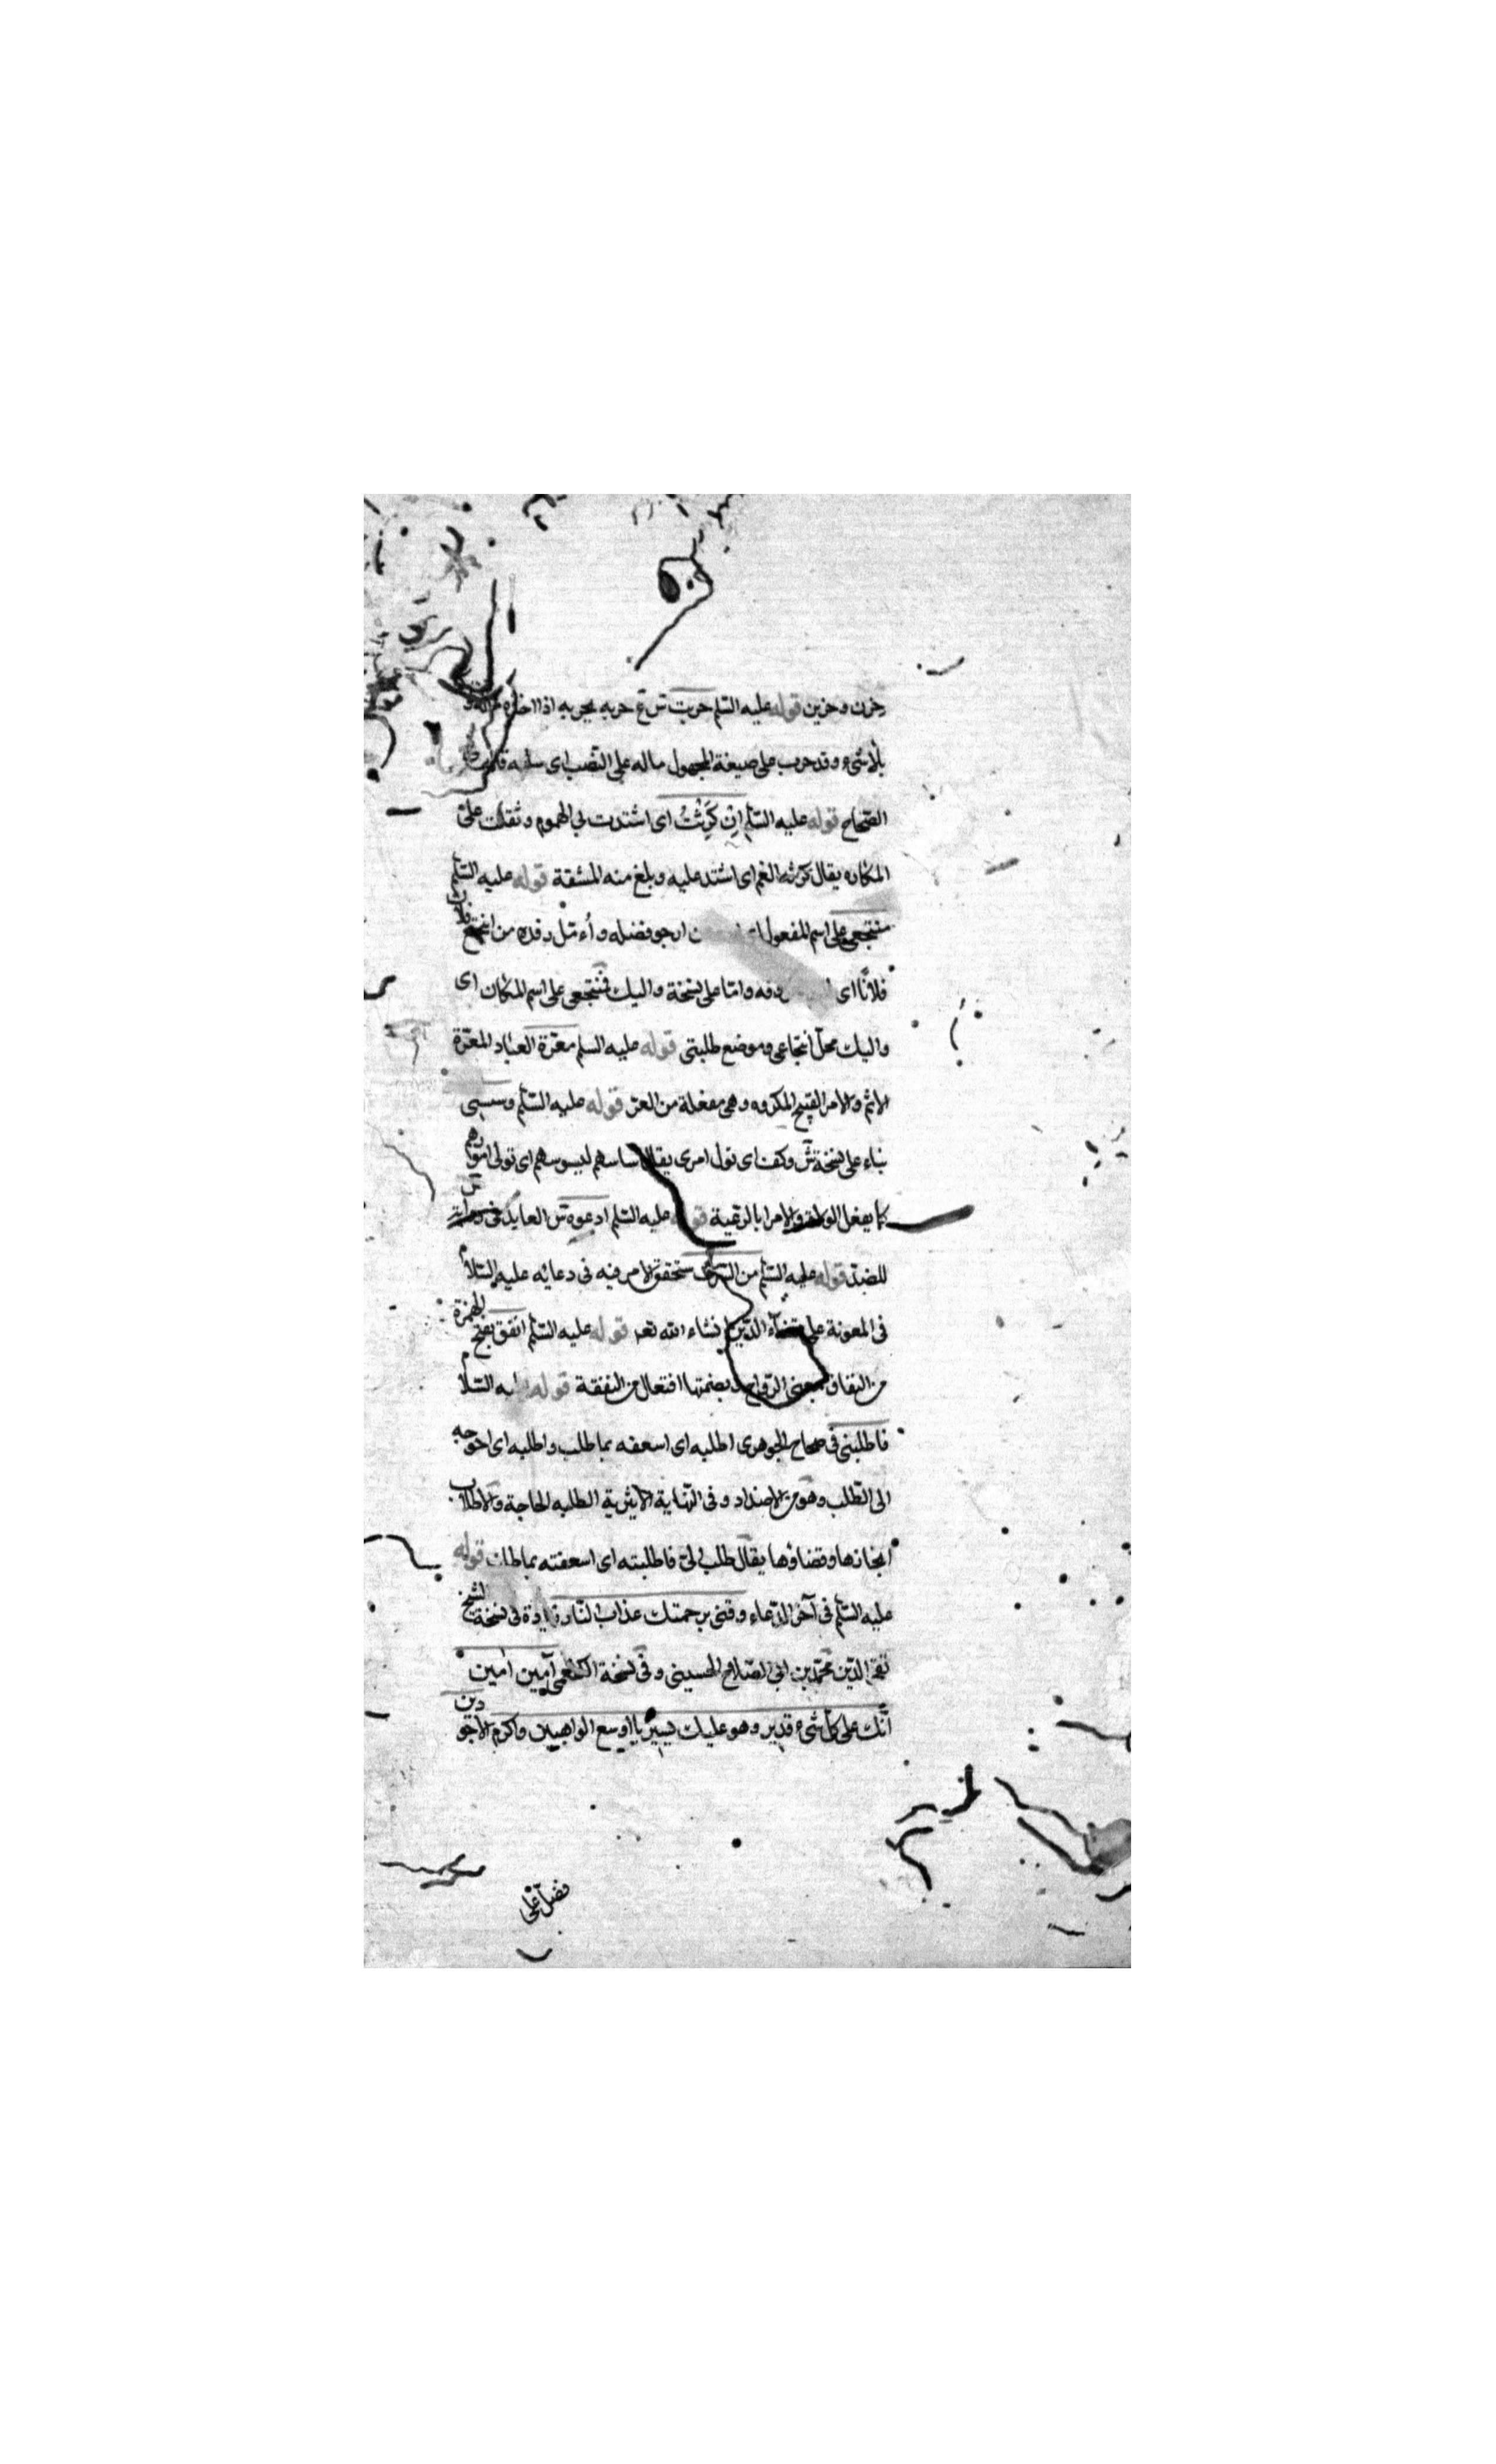 حزن وحزين قوله عليه السلم حربت ش ع حربه يحربه اذا اخذ ماله و
بلاشىء وقد حرب على صيغة المجهول ماله على النصب اى سلبه قاله فى
الصحاح قوله عليه السلم ان كرثت اى اشتدت بى الهموم وثقلت على
المكاره يقال كرثه الغم اى اشتد عليه وبلغ منه المشقة قوله عليه السلم
منتجعى على اسم المفعول ارجو فضله وأءمل رفده من انتجع فلان
فلانًا اى رفده واما على نسخة واليك فمنتجعى على اسم المكان اى
واليك محل انتجاعى وموضع طلبتى قوله عليه السلم معرّة العباد المعرّة
الاثم والامر القبيح المكروه وهى مفعلة من العر قوله عليه السلم وسسنى
بناء على نسخة ش وكف اى تول امرى يقال ساسهم يسوسهم اى تولى امورهم
كما يفعل الولاة والامرا بالرعية قوله عليه السلم ادعوه ش العايد فى
للضد قوله عليه السلم من السرف ستحقق الامر فيه فى دعائه عليه السلام
فى المعونة على قضآء الدين انشاء الله تعه قوله عليه السلم انفق بفتح الهمزة
من النفاق بمعنى الرواج وبضمتها افتعال من النفقة قوله عليه السلام
فاطلبنى فى صحاح الجوهرى اطلبه اى اسعفه بما طلب واطلبه اى احوجه
الى الطلب وهو من الاضداد وفى النهاية الاثيرية الطلبه الحاجة والاطلاب
انجازها وقضاؤها يقال طلب الىّ فاطلبته اى اسعفته بما طلب قوله
عليه السلم فى آخر الدعاء وقنى برحمتك عذاب النار زيادة فى نسخة الشيخ
تقى الدين محمد بن ابى الصلاح الحسينى وفى نسخة الكفعمى آمين آمين
انّك على كل شىء قدير وهو عليك يسير يا اوسع الواهبين واكرم الاجودين
فضل على